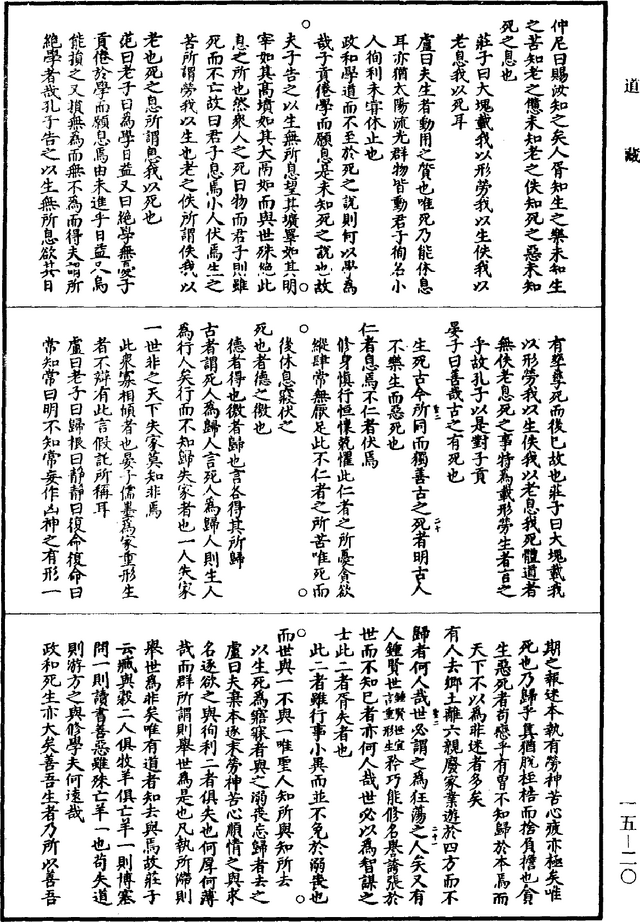 道藏
仲尼曰賜汝知之矣人胥知生之樂未知生
之苦知老之憊未知老之佚知死之惡未知
死之息也
莊子曰大塊載我以形勞我以生佚我以
老息我以死耳
盧曰夫生者動用之質也唯死乃能休息
耳亦猶太陽流光群物皆動君子徇名小
人徇利未嘗休止也
政和學道而不至於死之說則何以學為
哉子貢倦學而願息是未知死之說也故
夫子告之以生無所息望其壙睾如其明
宰如其高墳如其大鬲如而與世殊絕此
息之所也然衆人之死曰物而君子則雖
死而不亡故曰君子息焉小人伏焉生之
苦所謂勞我以生也老之佚所謂佚我以
老也死之息所謂息我以死也
范曰老子曰為學日益又曰絕學無憂子
貢倦於學而願息焉由未進乎日益又烏
能損之又損無為而無不為而得夫謂所
絕學者哉孔子告之以生無所息欲其日
有孳孳死而後已故也莊子曰大塊載我
以形勞我以生佚我以老息我死體道者
無佚老息死之事特為載形勞生者言之
乎故孔子以是對子貢
晏子曰善哉古之有死也
生死古今所同而獨善古之死者明古人
不樂生而惡死也
仁者息焉不仁者伏焉
修身慎行恒懷兢懼此仁者之所憂貪欲
縱肆常無厭足此不仁者之所苦唯死而
後休息寢伏之
死也者德之徼也
德者得也徼者歸也言各得其所歸
古者謂死人為歸人言死人為歸人則生人
為行人矣行而不知歸失家者也一人失家
一世非之天下失家莫知非焉
此衆寡相傾者也晏子儒墨為家重形生
者不辯有此言假託所稱耳
盧曰老子曰歸根曰靜靜曰復命復命曰
常知常曰明不知常妄作凶神之有形一
期之報述本執有勞神苦心疲亦極矣唯
死也乃歸乎真猶脫桎梏而捨負擔也貪
生惡死者苟戀乎有曽不知歸於本焉而
天下不以為非迷者多矣
有人去鄉土離六親廢家業遊於四方而不
歸者何人哉世必謂之為狂蕩之人矣又有
人鍾賢世矜巧能修名譽誇張於
世而不知已者亦何人哉世必以為智謀之
士此二者胥失者也
此二者雖行事小異而並不免於溺喪也
而世與一不與一唯聖人知所與知所去
以生死為寤寐者與之溺喪忘歸者去之
盧曰夫棄本逐末勞神苦心順情之與求
名逐欲之與徇利二者俱失也何厚何薄
哉而群所謂則舉世為是也凡執所滯則
舉世為非矣唯有道者知去與焉故莊子
云臧與穀二人俱牧羊俱亡羊一則博塞
問一則讀書善惡雖殊亡羊一也苟失道
則游方之與修學夫何遠哉
政和死生亦大矣善吾生者乃所以善吾
一五-二〇